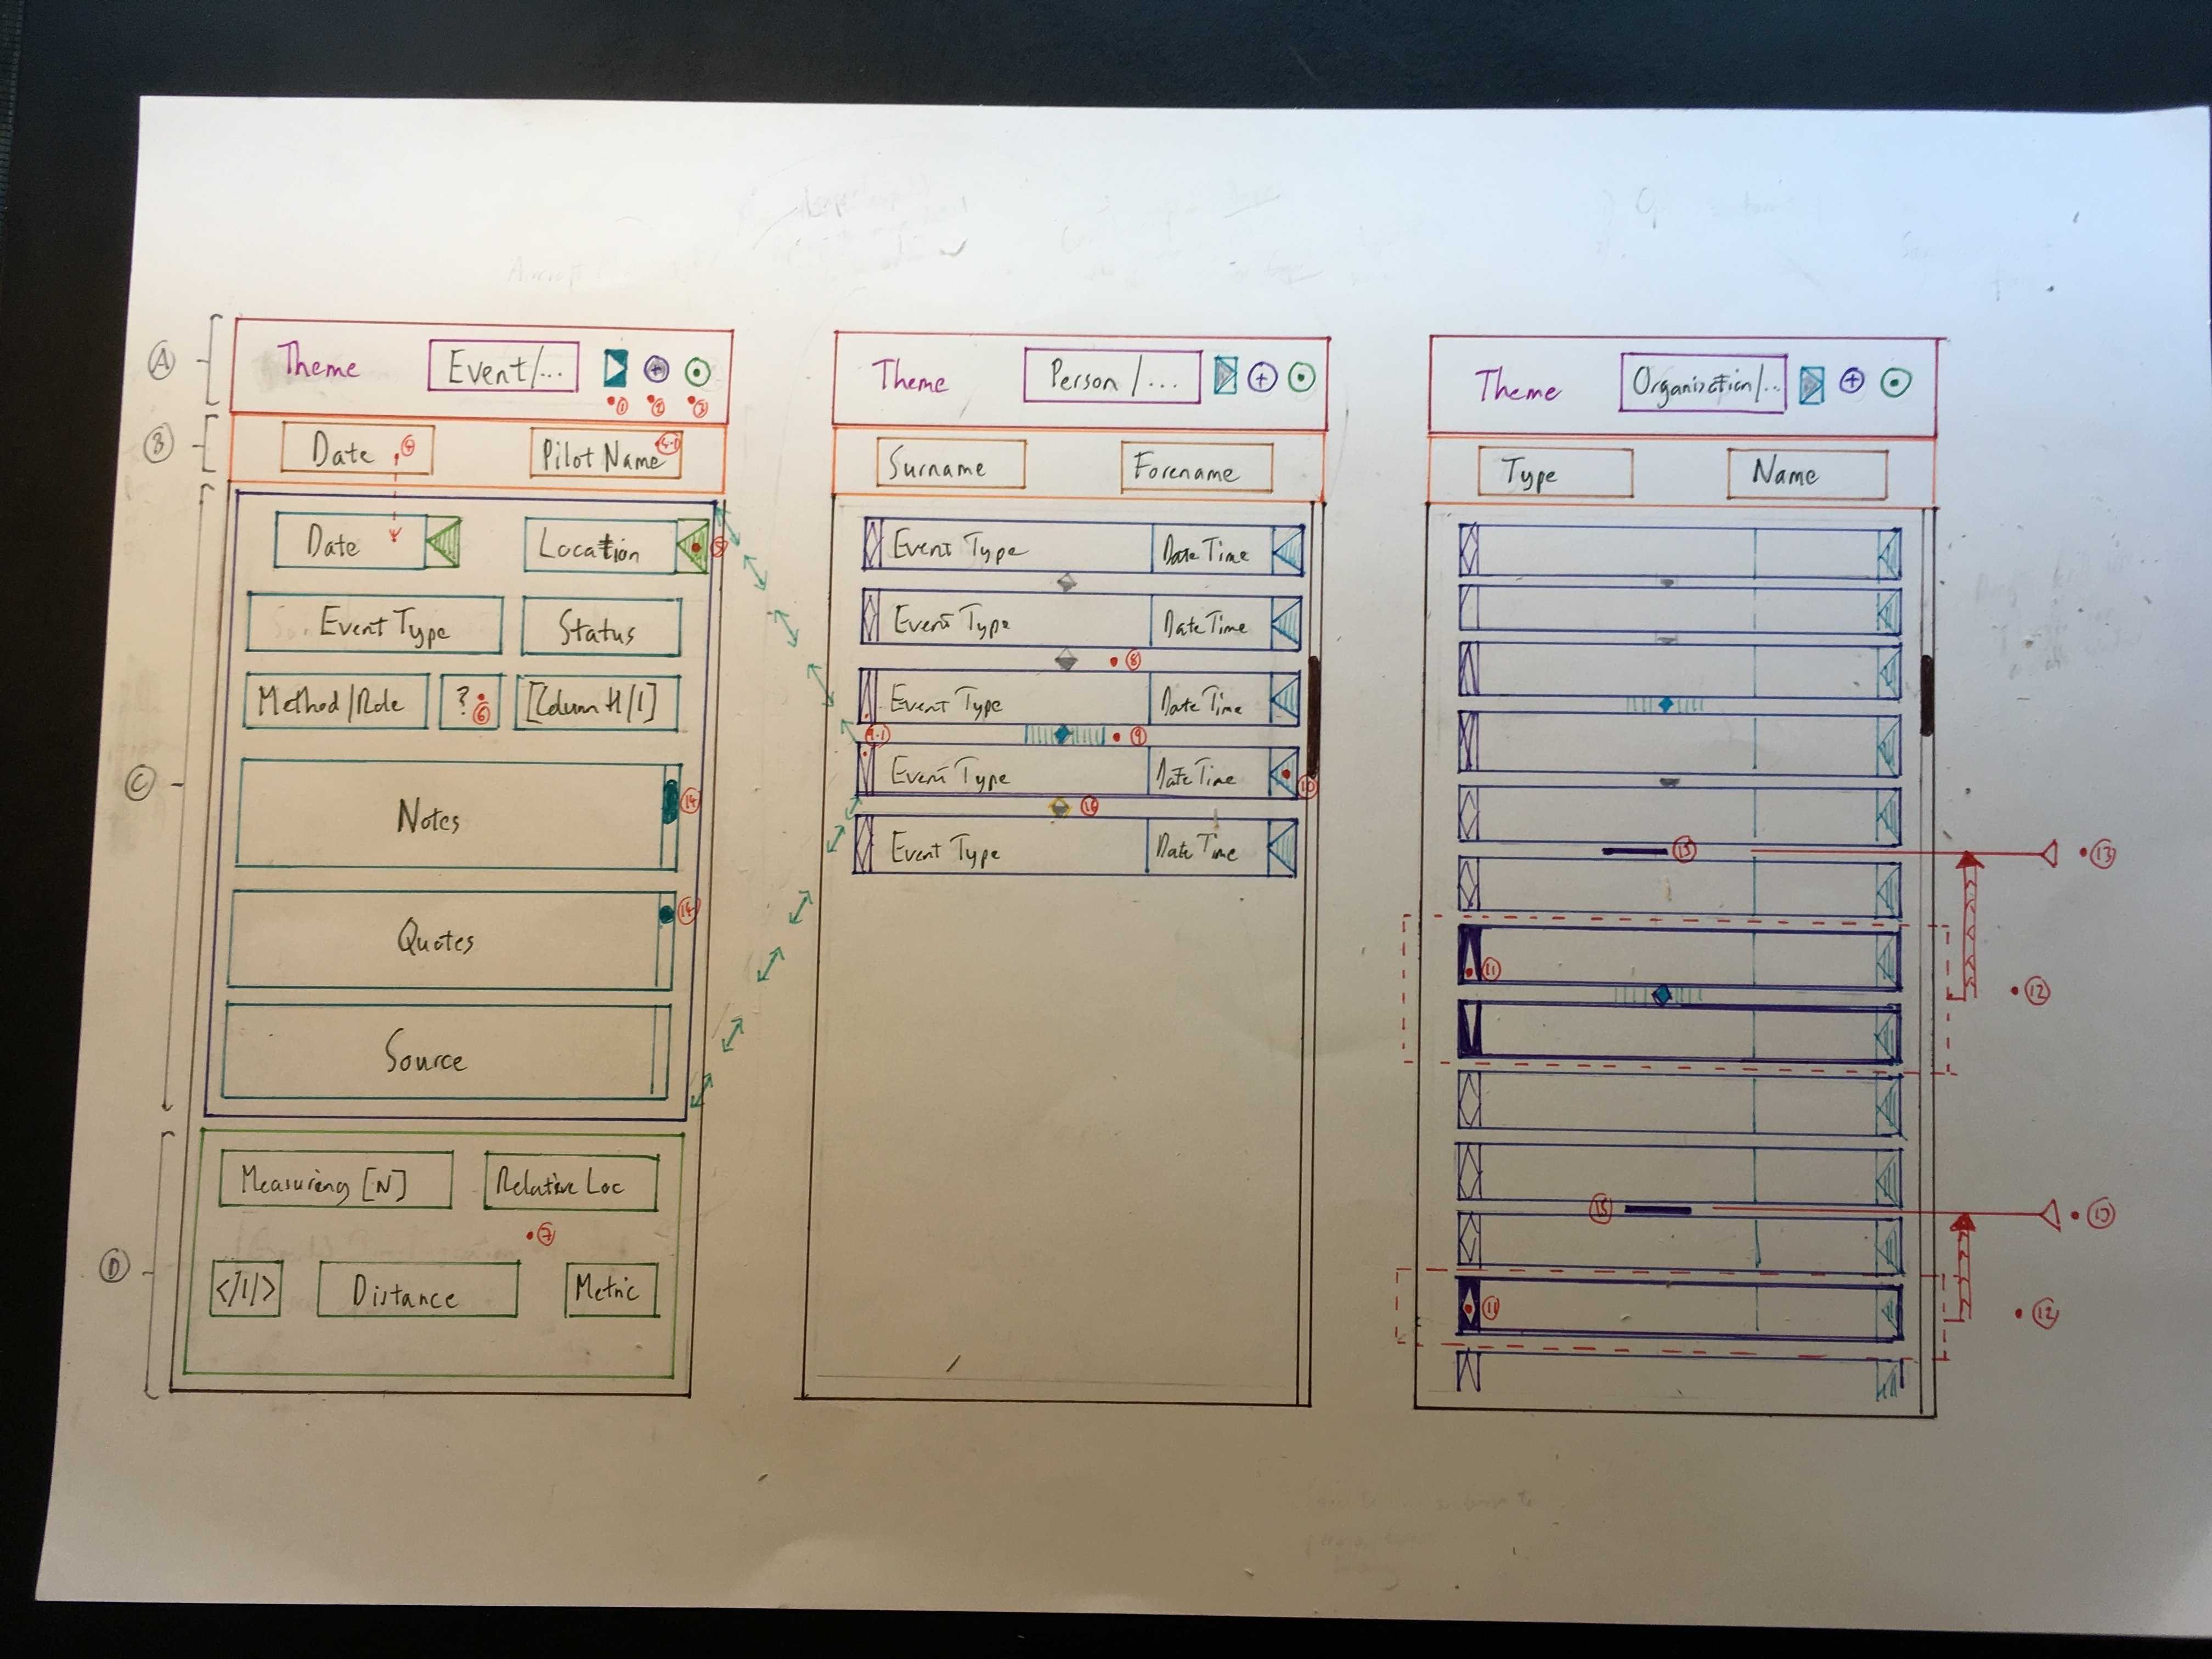 A
Theme
Event/...
1
2
3
B
Date
4
Pilot Name
4.1
C
Date
Location
5
Event Type
Status
Method/Role
?
6
[Column H/I]
Notes
14
Quotes
14
Source
D
Measuring [N]
Relative Loc
7
</1/>
Distance
Metric
Theme
Person /...
+
Surname
Forename
Event Type
Date Time
Event Type
Date Time
8
Event Type
Date Time
9.1
9
Event Type
Date Time
10
16
Event Type
Date Time
Theme
Organisation/...
+
Type
Name
15
13
11
12
15
13
11
12